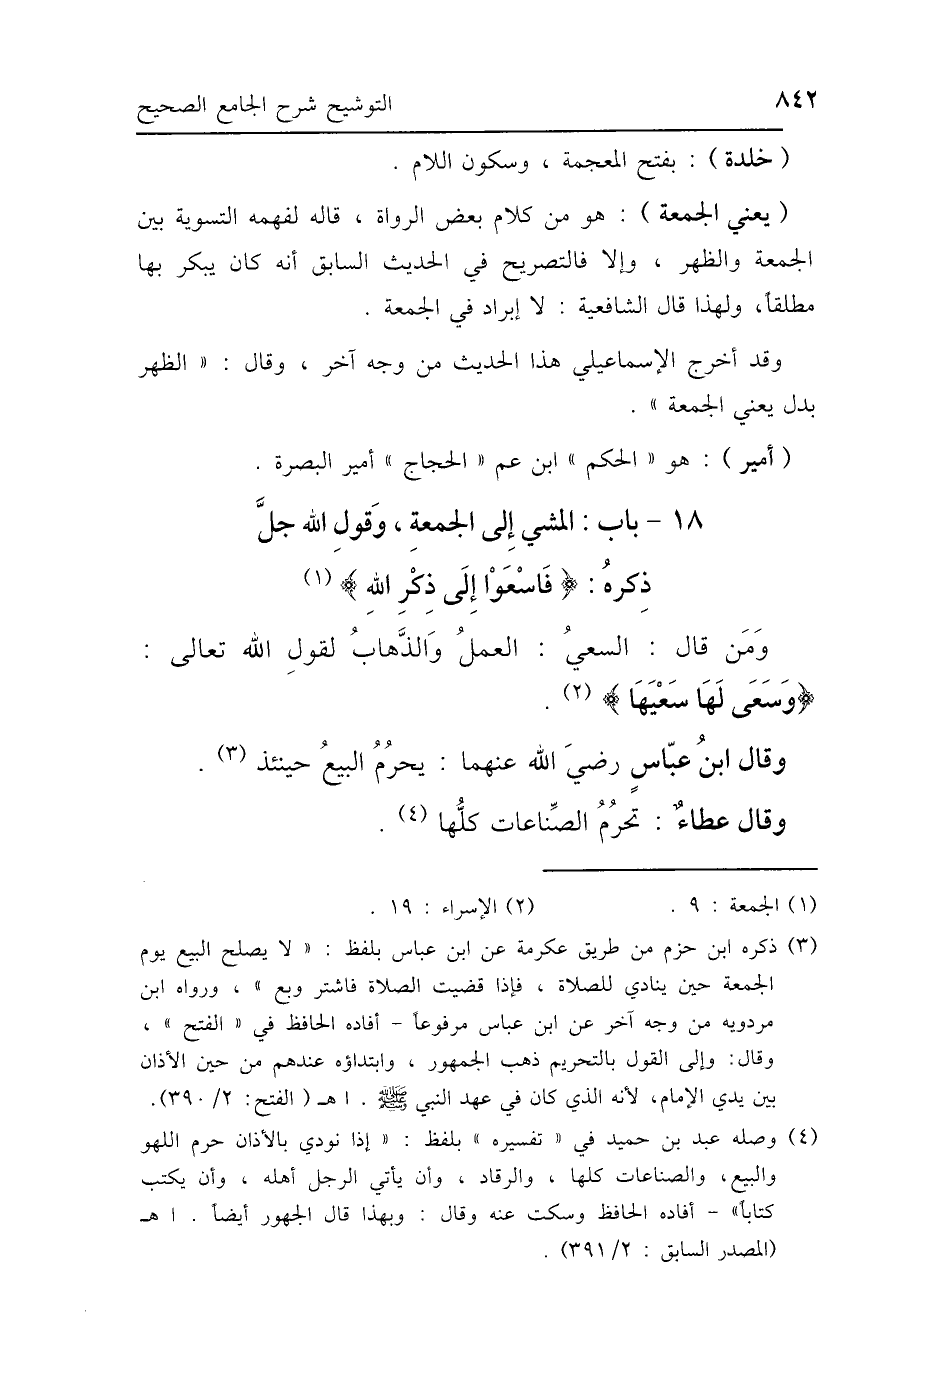 ٨٤٢ التوشيح شرح الجامع الصحيح
( خلدة ) : بفتح المعجمة ، وسكون اللام .
( يعني الجمعة ) : هو من كلام بعض الرواة ، قاله لفهمه التسوية بين
الجمعة والظهر ، وإلا فالتصريح في الحديث السابق أنه كان يبكر بها
مطلقاً، ولهذا قال الشافعية : لا إبراد في الجمعة .
وقد أخرج الإسماعيلي هذا الحديث من وجه آخر ، وقال : « الظهر
بدل يعني الجمعة » .
( أمير ) : هو « الحكم » ابن عم « الحجاج » أمير البصرة .
١٨ - باب : المشي إِلى الجمعةِ ، وَقولِ الله جلَّ
ذِكرهُ : ﴿ فَاسْعَوْا إِلَى ذِكْرِ اللهِ ﴾ (١)
وَمَن قال : السعيُ : العملُ وَالذَّهابُ لقولِ الله تعالى :
﴿وَسَعَى لَهَا سَعْيَهَا ﴾ (٢) .
وقال ابنُ عبّاسٍ رضيَ الله عنهما : يحرُمُ البيعُ حينئذ (٣) .
وقال عطاءٌ : تحرُمُ الصِّناعات كلُّها (٤) .
(١) الجمعة : ٩ . (٢) الإسراء : ١٩ .
(٣) ذكره ابن حزم من طريق عكرمة عن ابن عباس بلفظ : « لا يصلح البيع يوم
الجمعة حين ينادي للصلاة ، فإذا قضيت الصلاة فاشتر وبع » ، ورواه ابن
مردويه من وجه آخر عن ابن عباس مرفوعاً - أفاده الحافظ في « الفتح » ،
وقال: وإلى القول بالتحريم ذهب الجمهور ، وابتداؤه عندهم من حين الأذان
بين يدي الإمام، لأنه الذي كان في عهد النبي ﷺ . ا هـ ( الفتح: ٢/ ٣٩٠).
(٤) وصله عبد بن حميد في « تفسيره » بلفظ : « إذا نودي بالأذان حرم اللهو
والبيع، والصناعات كلها ، والرقاد ، وأن يأتي الرجل أهله ، وأن يكتب
كتاباً» - أفاده الحافظ وسكت عنه وقال : وبهذا قال الجهور أيضاً . ا هـ
(المصدر السابق : ٢/ ٣٩١) .